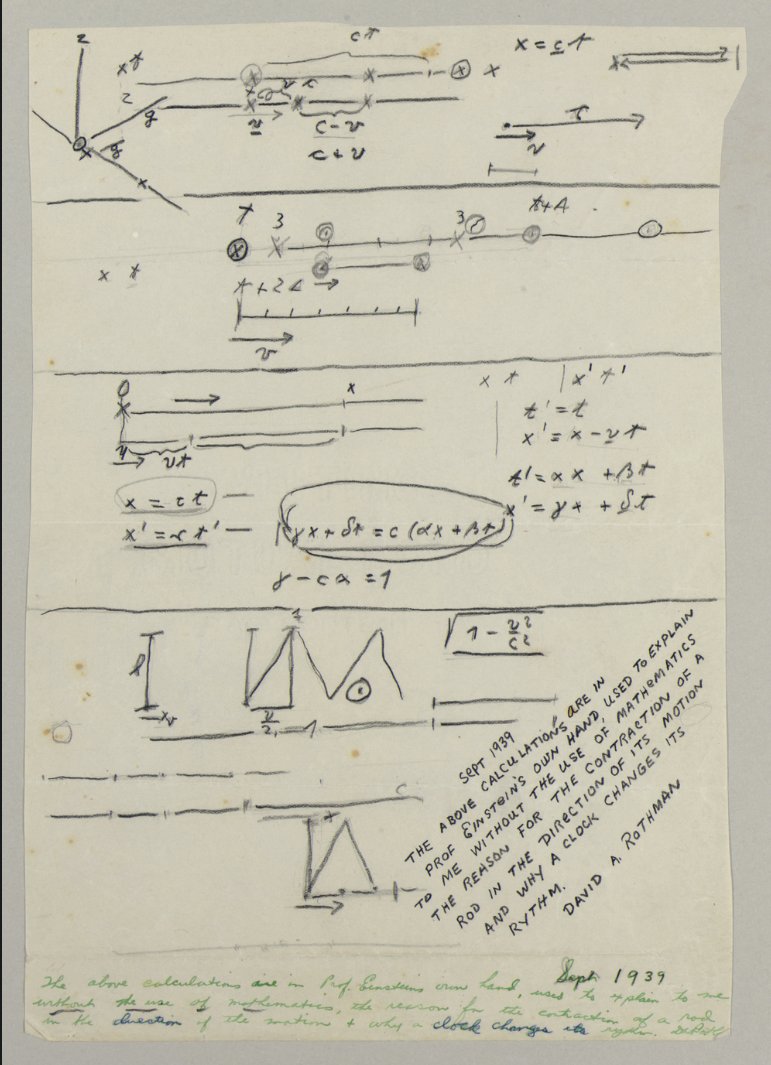 z
x t
c t
x = c t
z
y
v c
v
c - v
c + v
x
x
c
v
t
3
3
t + Δ
x t
t + 2Δ →
v
x
v t
x t | x' t'
t' = t
x' = x - v t
t' = αx + βt
x' = γx + δt
x = c t
x' = c t'
γx + δt = c (αx + βt)
γ - cα = 1
√1 - v²/c²
l
v
v/2
1
c
SEPT 1939
THE ABOVE CALCULATIONS ARE IN
PROF EINSTEIN'S OWN HAND, USED TO EXPLAIN
TO ME WITHOUT THE USE OF MATHEMATICS
THE REASON FOR THE CONTRACTION OF A
ROD IN THE DIRECTION OF ITS MOTION
AND WHY A CLOCK CHANGES ITS
RYTHM.
DAVID A. ROTHMAN
Sept 1939
The above calculations are in Prof. Einsteins own hand, used to explain to me
without the use of mathematics, the reason for the contraction of a rod
in the direction of the motion + why a clock changes its rythm.